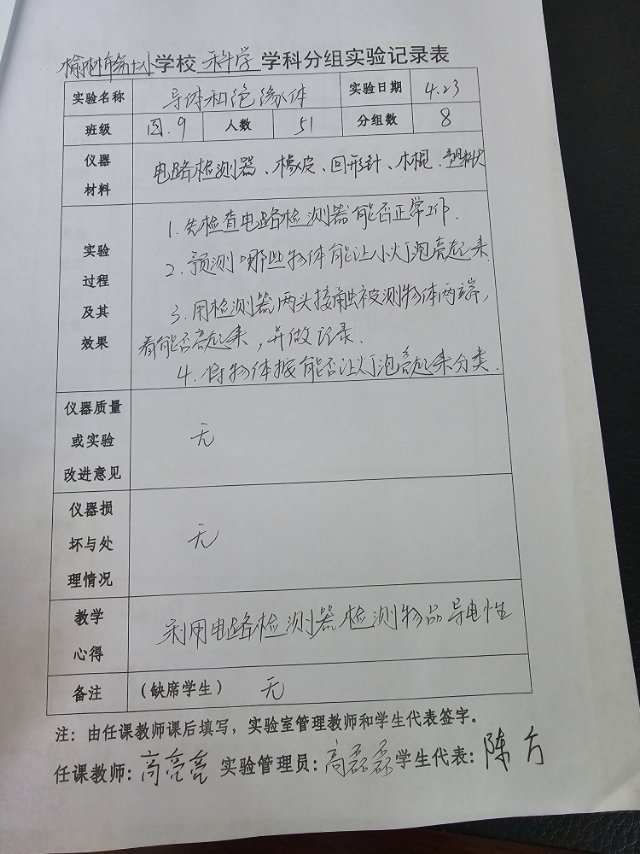 榆树市第十小学校 科学 学科分组实验记录表
实验名称 导体和绝缘体 实验日期 4.23
班级 四.9 人数 51 分组数 8
仪器材料 电路检测器、橡皮、回形针、木棍、塑料尺
实验过程及其效果
1. 先检查电路检测器能否正常工作.
2. 预测哪些物体能让小灯泡亮起来
3. 用检测器两头接触被测物体两端,
看能否亮起来,并做记录.
4. 将物体按能否让灯泡亮起来分类.
仪器质量或实验改进意见 无
仪器损坏与处理情况 无
教学心得 利用电路检测器检测物品导电性
备注 (缺席学生) 无
注:由任课教师课后填写,实验室管理教师和学生代表签字。
任课教师:高亮亮 实验管理员:高磊磊 学生代表:陈方